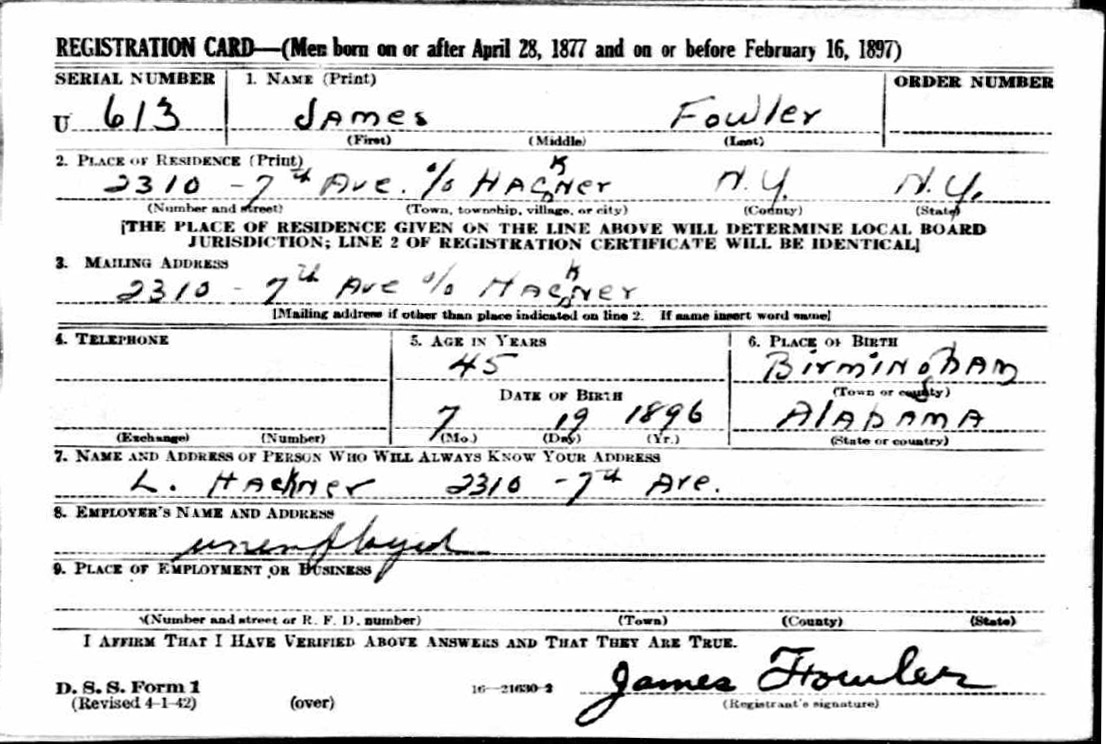 REGISTRATION CARD—(Men born on or after April 28, 1877 and on or before February 16, 1897)
SERIAL NUMBER 1. NAME (Print) ORDER NUMBER
U 613 James Fowler
(First) (Middle) (Last)
2. PLACE OF RESIDENCE (Print)
2310 - 7th Ave. % Hackner N.Y. N.Y.
(Number and street) (Town, township, village, or city) (County) (State)
[THE PLACE OF RESIDENCE GIVEN ON THE LINE ABOVE WILL DETERMINE LOCAL BOARD
JURISDICTION; LINE 2 OF REGISTRATION CERTIFICATE WILL BE IDENTICAL]
3. MAILING ADDRESS
2310 - 7th Ave % Hackner
[Mailing address if other than place indicated on line 2. If same insert word same]
4. TELEPHONE 5. AGE IN YEARS 6. PLACE OF BIRTH
45 Birmingham
DATE OF BIRTH (Town or county)
7 19 1896 Alabama
(Exchange) (Number) (Mo.) (Day) (Yr.) (State or country)
7. NAME AND ADDRESS OF PERSON WHO WILL ALWAYS KNOW YOUR ADDRESS
L. Hackner 2310 - 7th Ave.
8. EMPLOYER'S NAME AND ADDRESS
unemployed
9. PLACE OF EMPLOYMENT OR BUSINESS
(Number and street or R. F. D. number) (Town) (County) (State)
I AFFIRM THAT I HAVE VERIFIED ABOVE ANSWERS AND THAT THEY ARE TRUE.
James Fowler
D. S. S. Form 1 16—21630-2
(Revised 4-1-42) (over) (Registrant's signature)